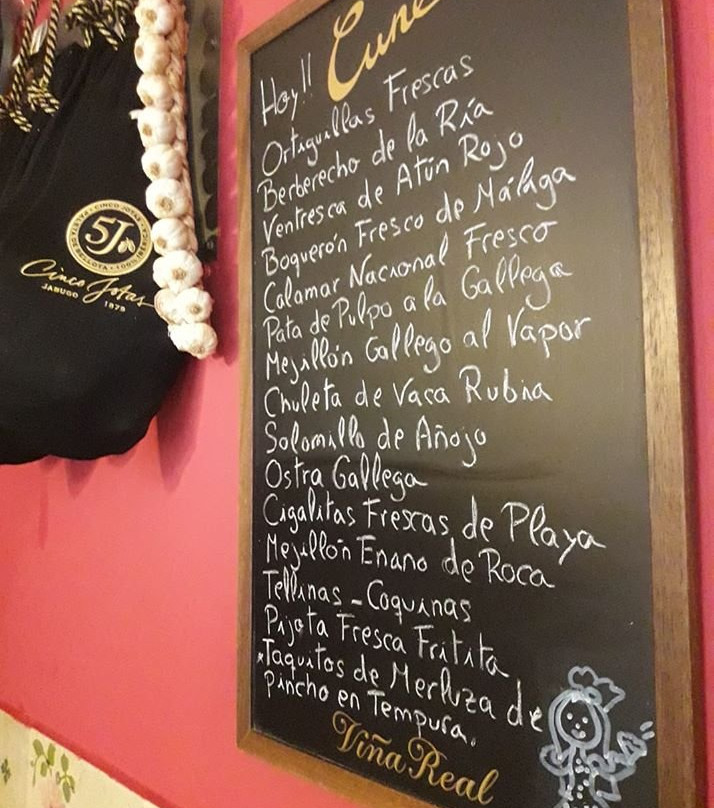 Cune
Hoy!!
Ortiguillas Frescas
Berberecho de la Ría
Ventresca de Atún Rojo
Boquerón Fresco de Málaga
Calamar Nacional Fresco
Pata de Pulpo a la Gallega
Mejillón Gallego al Vapor
Chuleta de Vaca Rubia
Solomillo de Añojo
Ostra Gallega
Cigalitas Frescas de Playa
Mejillón Enano de Roca
Tellinas - Coquinas
Pijota Fresca Fritita
*Taquitos de Merluza de
Pincho en Tempura.
Viña Real
5J
Cinco Jotas
JABUGO 1879